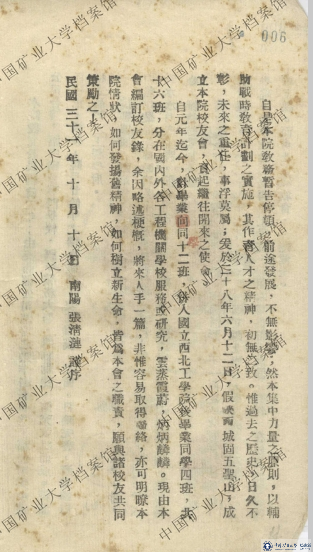 006
自是本院教務暫告停頓，之前途發展，不無影響，然本集中力量之原則，以輔
助戰時教育計劃之實施，其作育人才之精神，初無二致。惟過去之歷史，日久不
彰，未來之重任，事浮莫屬；爰於二十八年六月十二日，假陝西城固五聖，成
立本院校友會，負起繼往開來之使命。
自元年迄今，計畢業同十二班，併入國立西北工學院後畢業同學四班，共
十六班，分在國內外各工程機關學校服務或研究，雲蒸霞蔚，炳炳麟麟。現由本
會編訂校友錄，余因略述梗概，將來人手一篇，非惟容易取得聯絡，亦可明瞭本
院情狀，如何發揚舊精神，如何樹立新生命，皆為本會之職責，願與諸校友共同
策勵之！
民國三十一年十月十日 南陽 張清漣 謹序
中国矿业大学档案馆